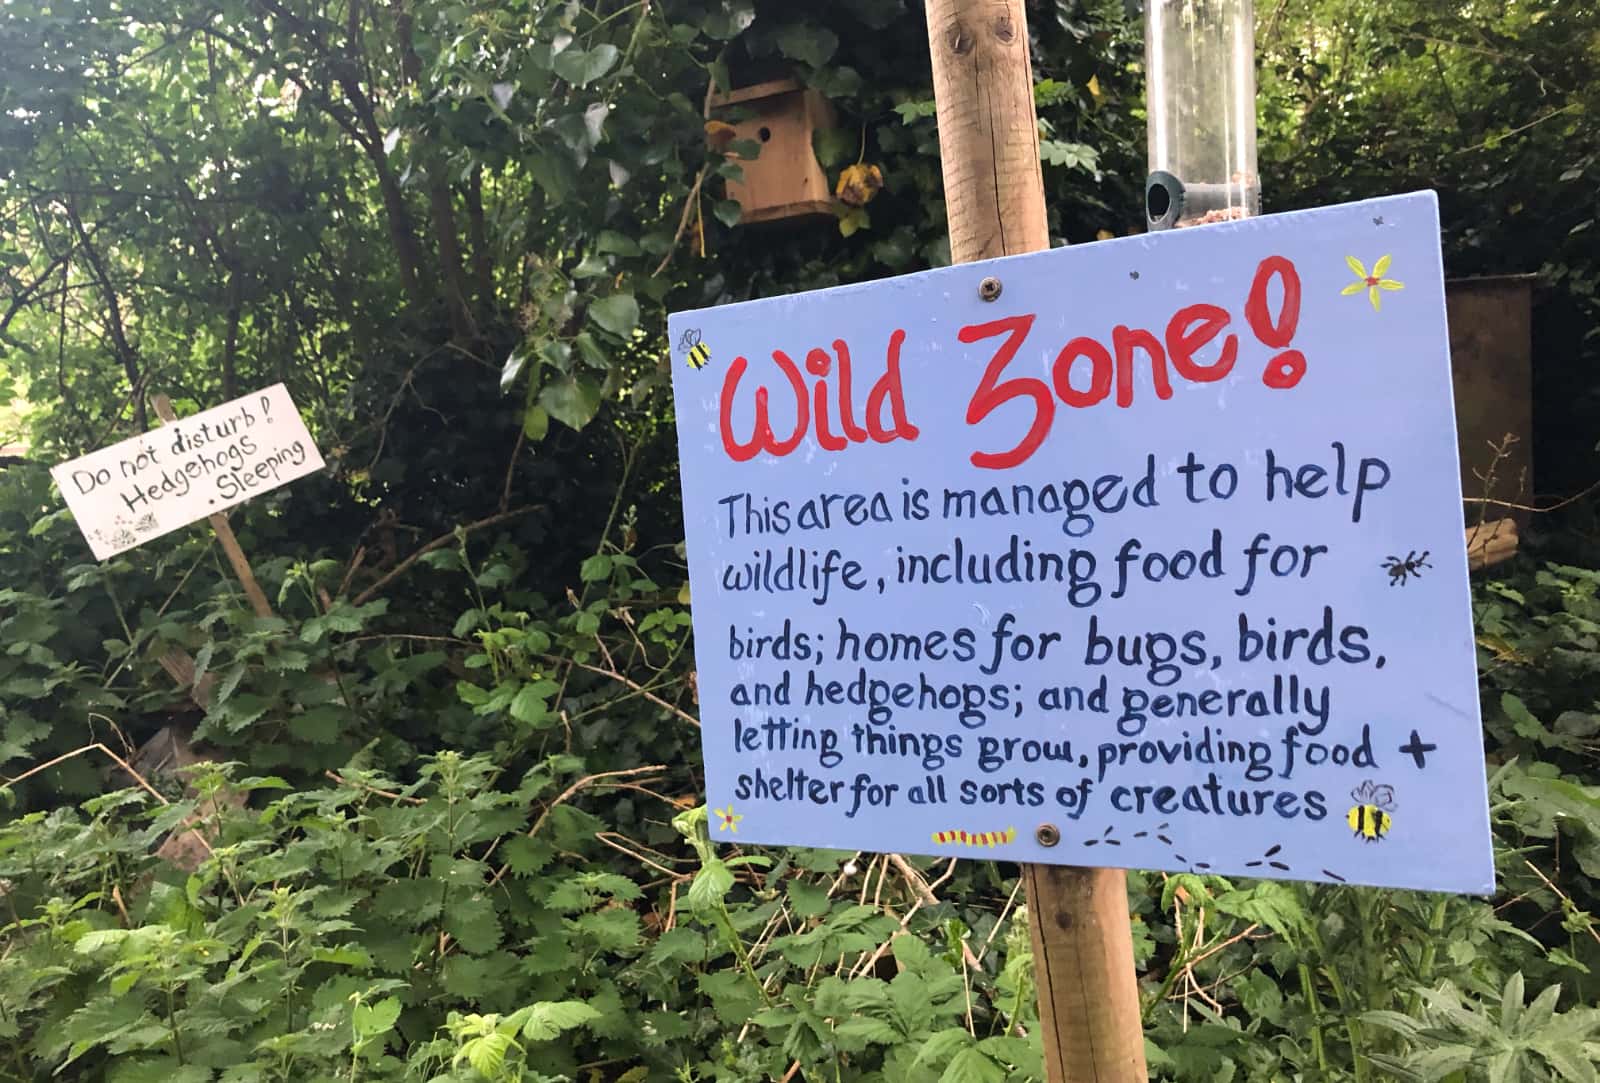 Do not disturb!
Hedgehogs
.Sleeping
Wild Zone!
This area is managed to help
wildlife, including food for
birds; homes for bugs, birds,
and hedgehogs; and generally
letting things grow, providing food +
shelter for all sorts of creatures